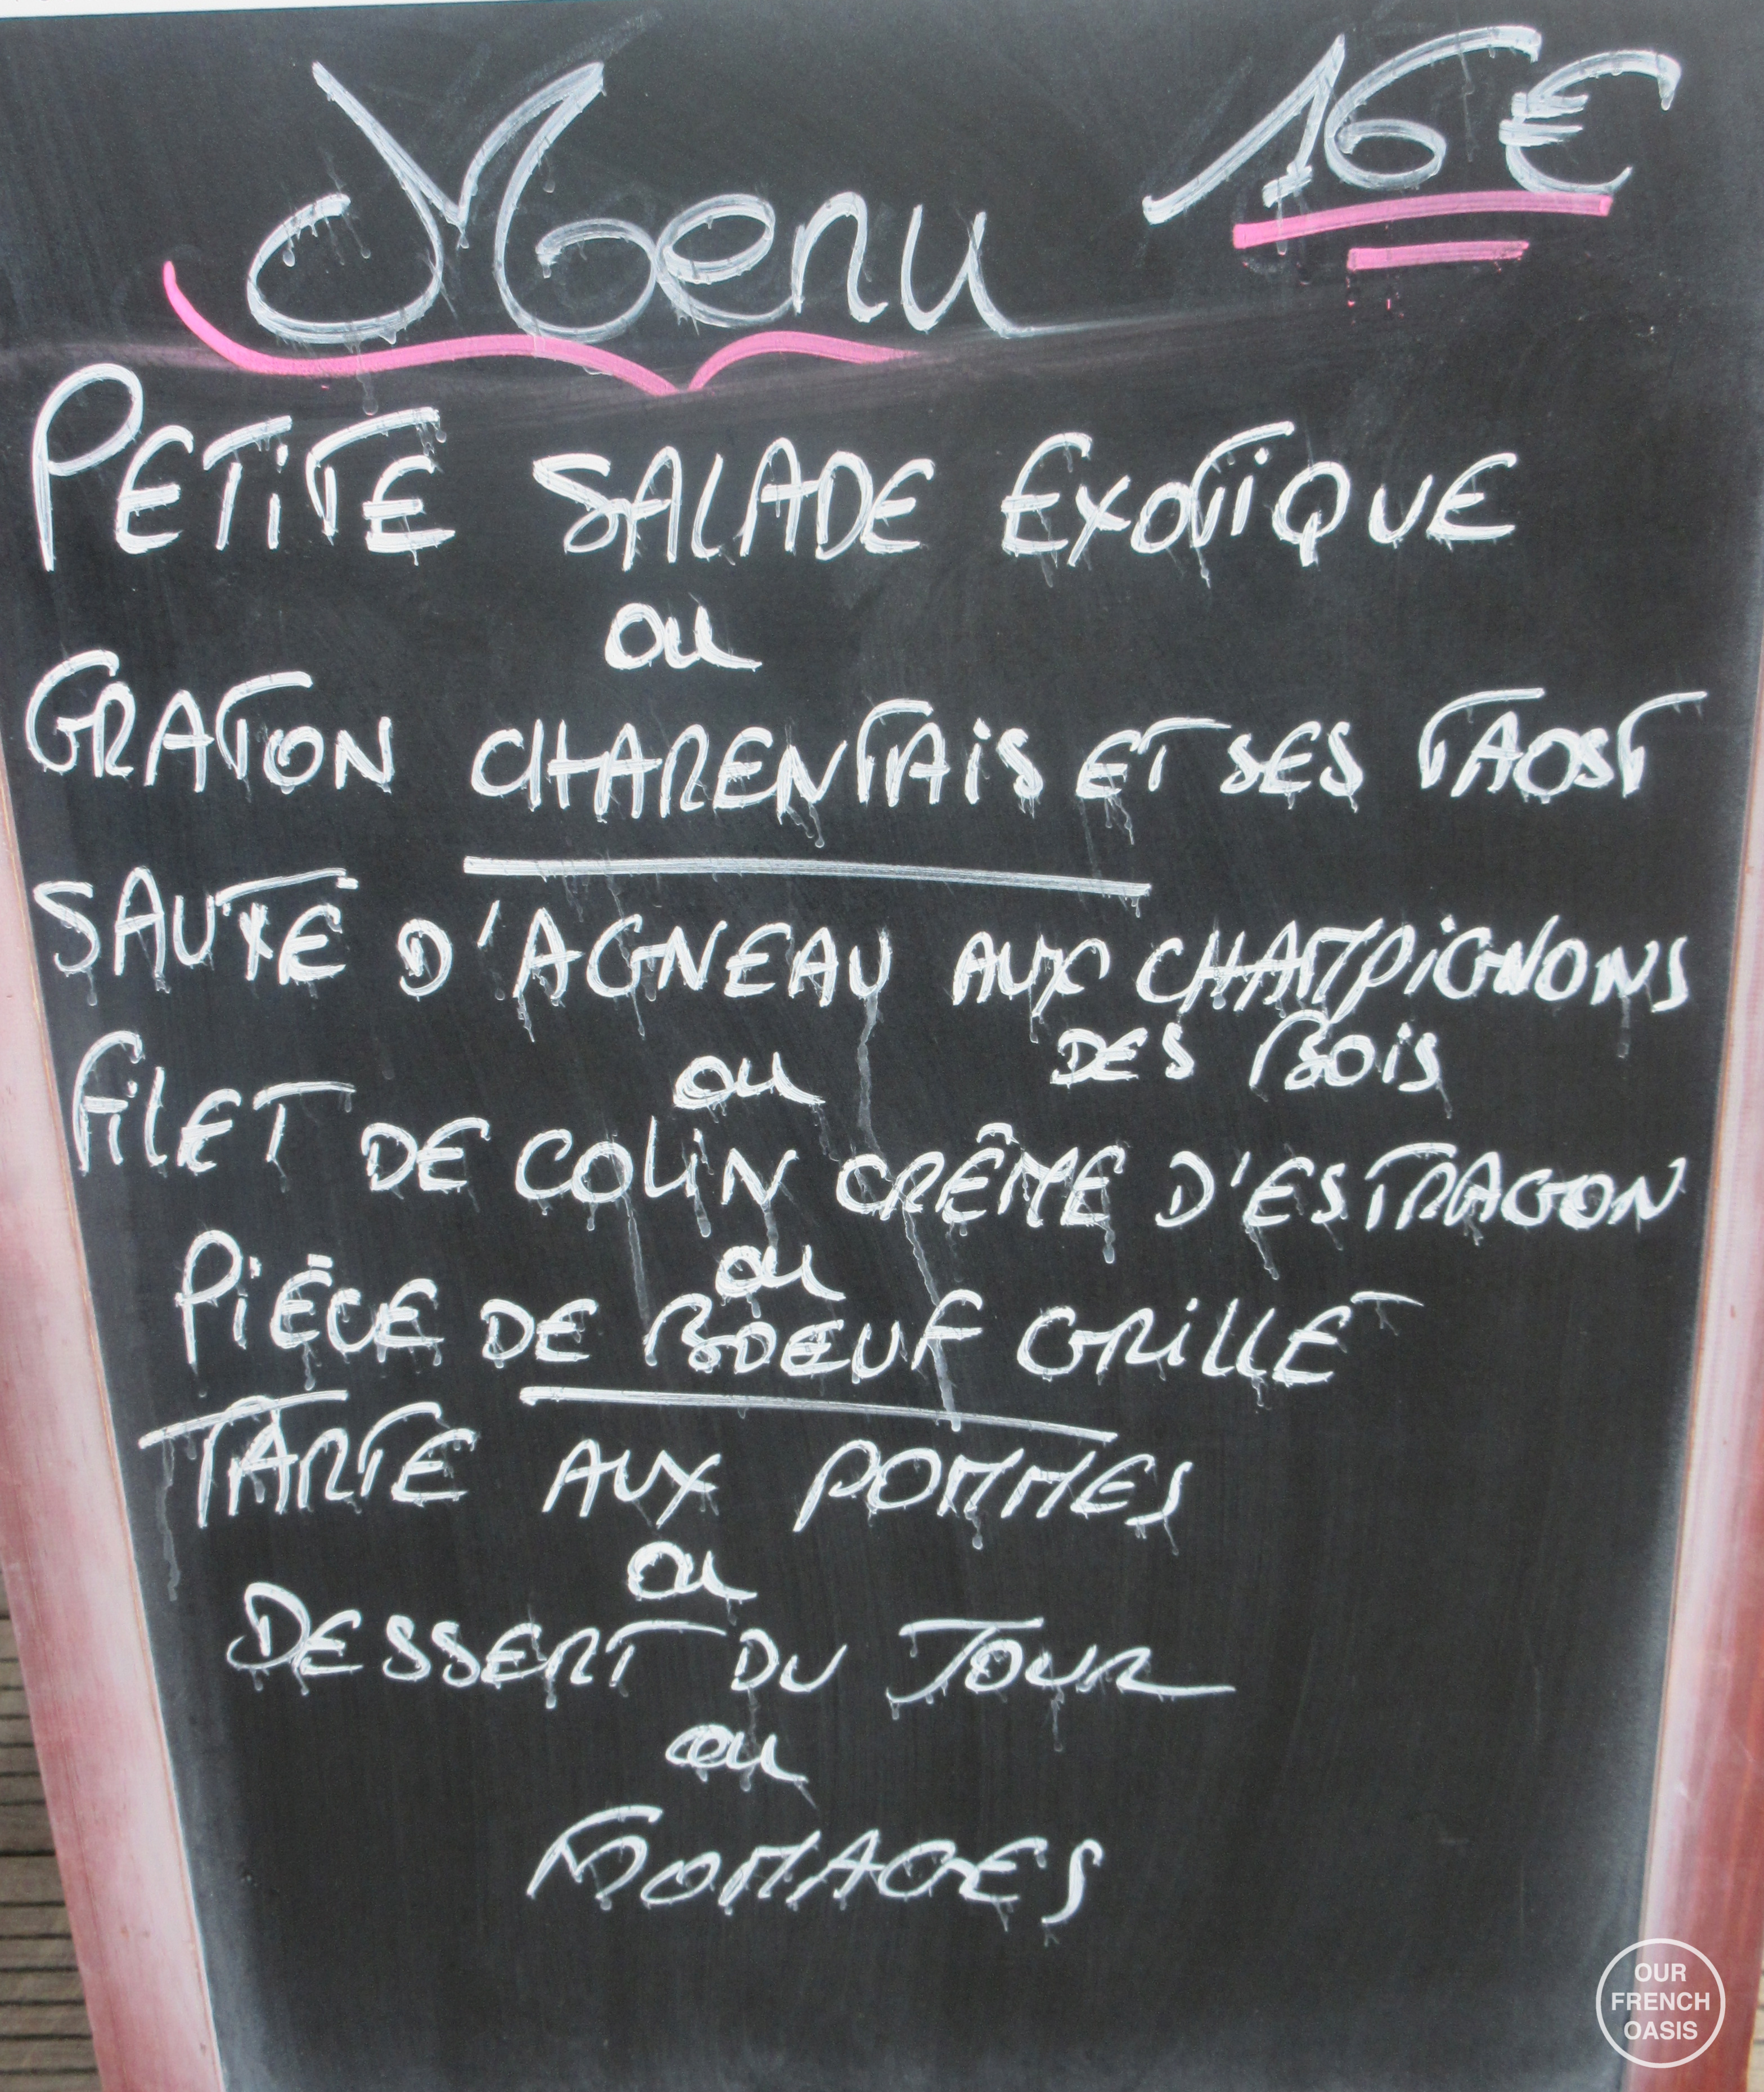 Menu 16€
PETITE SALADE EXOTIQUE
ou
GRATON CHARENTAIS ET SES TAOST
SAUTE D'AGNEAU AUX CHAMPIGNONS
DES BOIS
ou
FILET DE COLIN CRÊME D'ESTRAGON
ou
PIÈCE DE BOEUF GRILLÉ
TARTE AUX POMMES
ou
DESSERT DU JOUR
ou
FROMAGES
OUR
FRENCH
OASIS